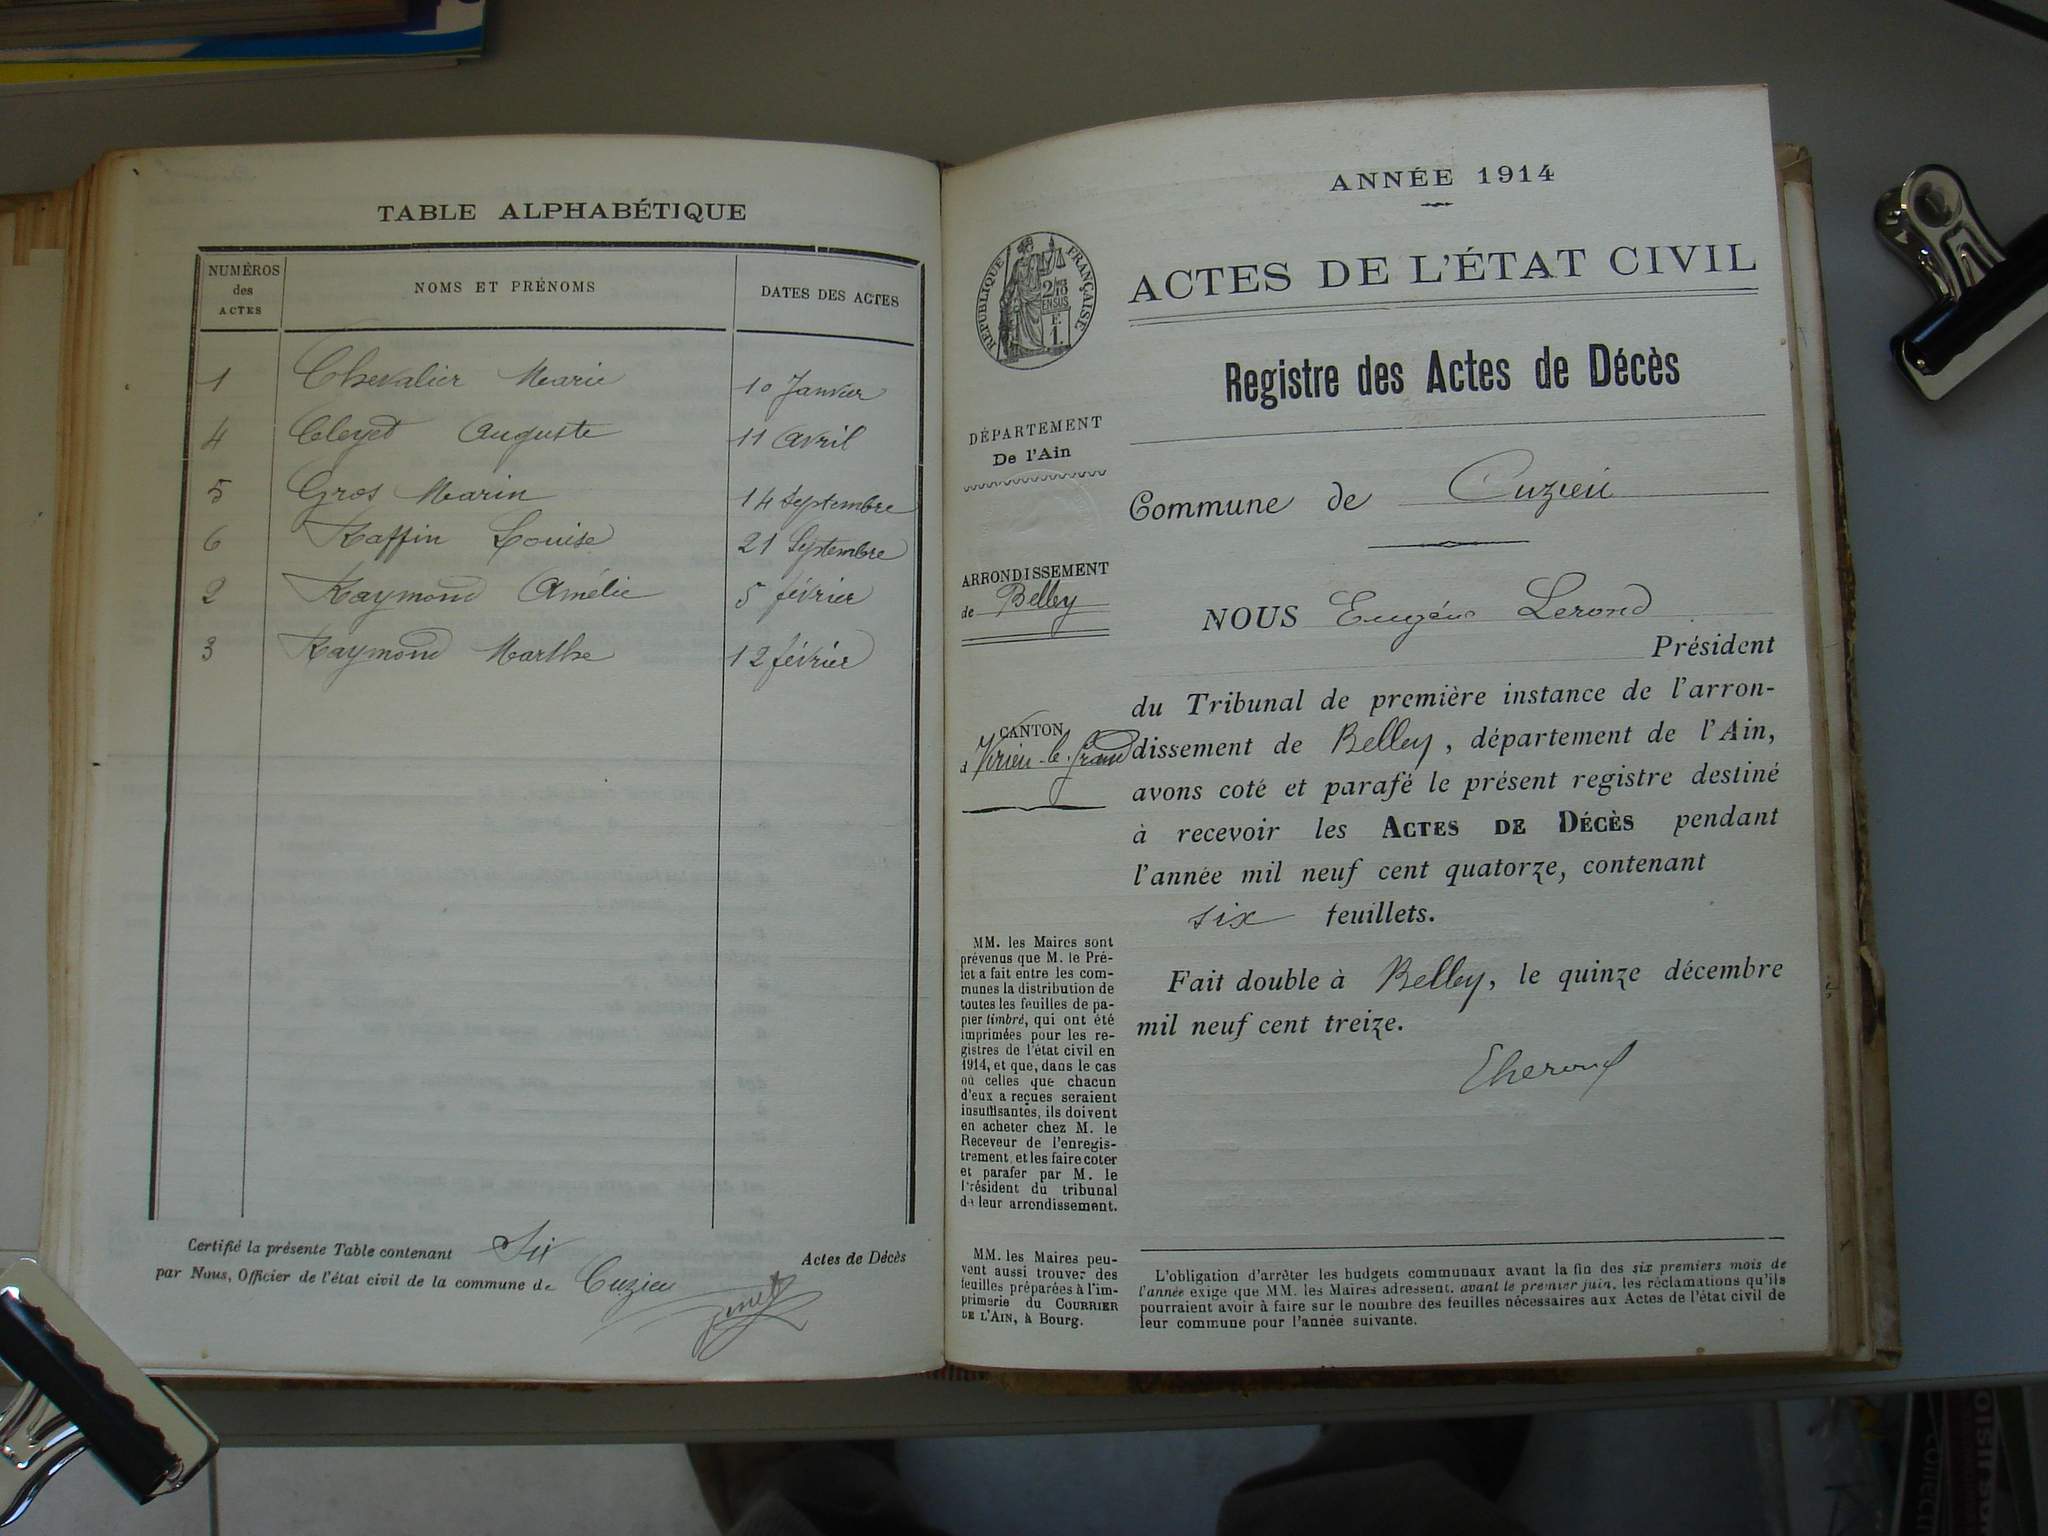 TABLE ALPHABÉTIQUE
NUMÉROS des ACTES
NOMS ET PRÉNOMS
DATES DES ACTES
1 Chevalier Marie 10 Janvier
4 Cleyet Auguste 11 avril
5 Gros Marin 14 Septembre
6 Raffin Louise 21 Septembre
2 Raymond Amélie 5 février
3 Raymond Marthe 12 février
Certifié la présente Table contenant Six Actes de Décès
par Nous, Officier de l'état civil de la commune de Cuzieu
ANNÉE 1914
RÉPUBLIQUE FRANÇAISE
ACTES DE L'ÉTAT CIVIL
Registre des Actes de Décès
DÉPARTEMENT
De l'Ain
Commune de Cuzieu
ARRONDISSEMENT
de Belley
NOUS Eugène Lerond
Président
du Tribunal de première instance de l'arron-
CANTON
d Virieu-le-Grand
dissement de Belley, département de l'Ain,
avons coté et parafé le présent registre destiné
à recevoir les ACTES DE DÉCÈS pendant
l'année mil neuf cent quatorze, contenant
six feuillets.
Fait double à Belley, le quinze décembre
mil neuf cent treize.
MM. les Maires sont
prévenus que M. le Pré-
fet a fait entre les com-
munes la distribution de
toutes les feuilles de pa-
pier timbré, qui ont été
imprimées pour les re-
gistres de l'état civil en
1914, et que, dans le cas
où celles que chacun
d'eux a reçues seraient
insuffisantes, ils doivent
en acheter chez M. le
Receveur de l'enregis-
trement, et les faire coter
et parafer par M. le
Président du tribunal
de leur arrondissement.
MM. les Maires peu-
vent aussi trouver des
feuilles préparées à l'im-
primerie du COURRIER
DE L'AIN, à Bourg.
L'obligation d'arrêter les budgets communaux avant la fin des six premiers mois de
l'année exige que MM. les Maires adressent, avant le premier juin, les réclamations qu'ils
pourraient avoir à faire sur le nombre des feuilles nécessaires aux Actes de l'état civil de
leur commune pour l'année suivante.